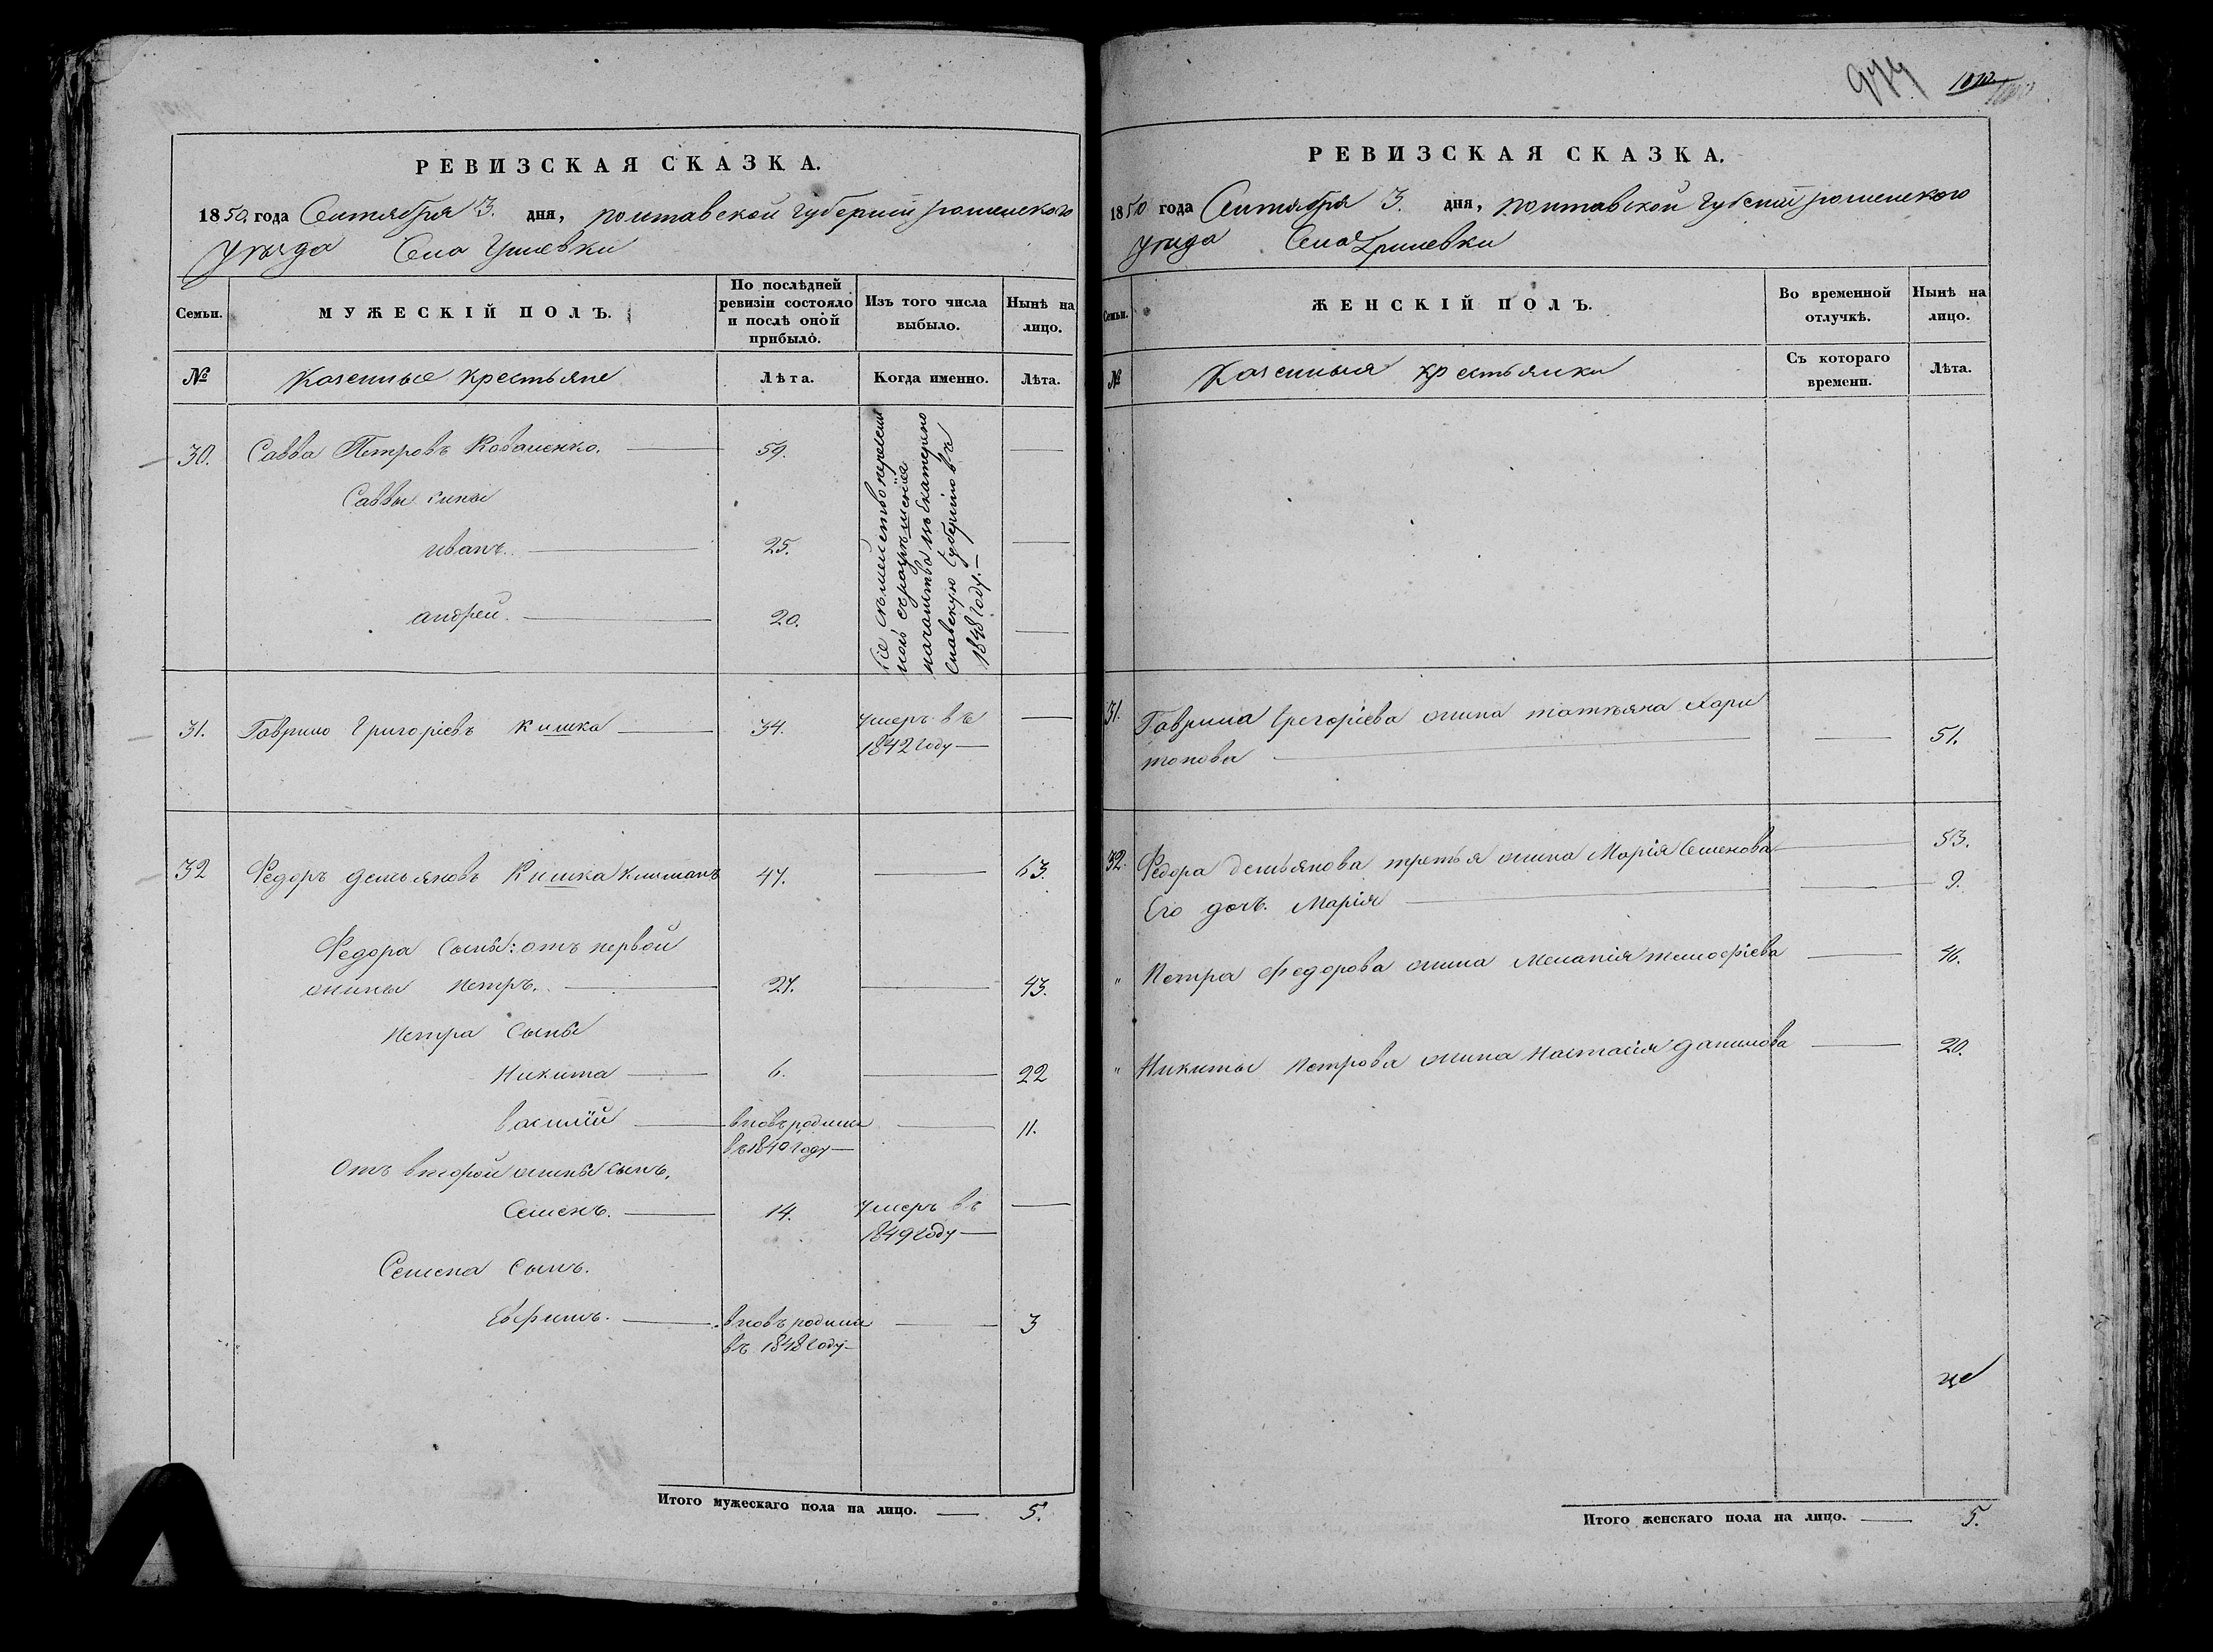 РЕВИЗСКАЯ СКАЗКА.
1850 года Сентября 3. дня, полтавской губерніи роменского
уезда Села
Семьи. МУЖЕСКІЙ ПОЛЪ. По послѣдней ревизіи состояло и послѣ оной прибыло. Изъ того числа выбыло. Нынѣ на лицо.
№ Казенные крестьяне Лѣта. Когда именно. Лѣта.
30. Савва Петровъ Коваленко. 59.
Саввы сины
иванъ. 25.
андрей. 20.
Сіе семейство пересели
начальства въ Екатерино
славскую губернію въ
1848 году.
31. Гаврило Григоріевъ Кишка 34. умеръ въ
1842 году
32 Федоръ демьяновъ Кишка 47. 63.
Федора сыны: отъ первой
жины петръ. 27. 43.
петра сыны
Никита 6. 22
василій вновь родился 11.
въ 1840 году
Отъ второй жины сынъ.
Семенъ. 14. умеръ въ
1849 году
Семена сынъ.
вновь родился 3
въ 1848 году
Итого мужескаго пола на лицо. 5.
974 1010
РЕВИЗСКАЯ СКАЗКА.
1850 года Сентября 3. дня, полтавской роменского
уезда Села
Семьи. ЖЕНСКІЙ ПОЛЪ. Во временной отлучкѣ. Нынѣ на лицо.
№ Казенныя крестьянки Съ котораго времени. Лѣта.
31. Гаврила Григоріева жина татьяна Хари
тонова 51.
32. Федора демьянова третья жина Марія Семенова 53.
Его дочь. Марія 9.
" петра Федорова жина Меланія 46.
" Никиты петрова жина настасія данилова 20.
Итого женскаго пола на лицо. 5.